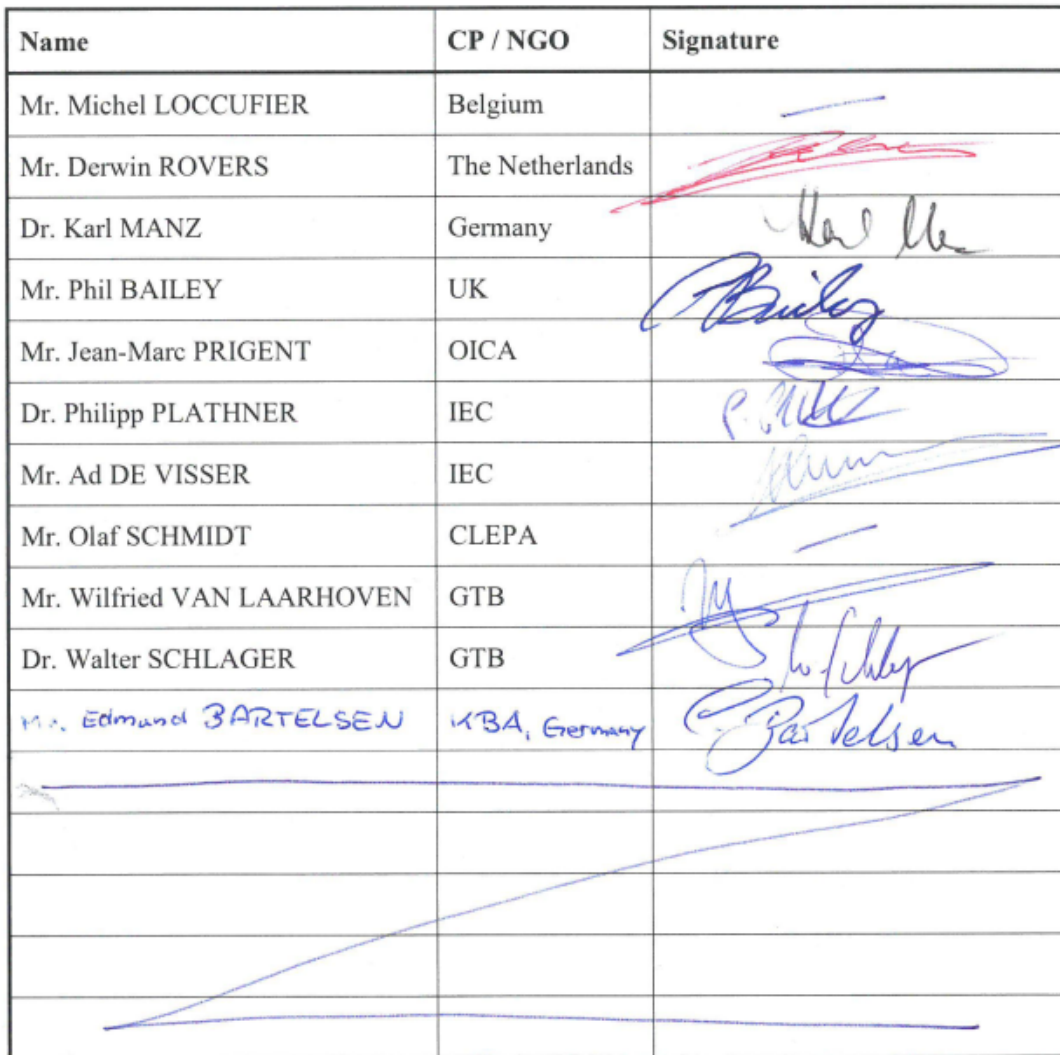 Name CP / NGO Signature
Mr. Michel LOCCUFIER Belgium —
Mr. Derwin ROVERS The Netherlands
Dr. Karl MANZ Germany
Mr. Phil BAILEY UK Bailey
Mr. Jean-Marc PRIGENT OICA
Dr. Philipp PLATHNER IEC
Mr. Ad DE VISSER IEC
Mr. Olaf SCHMIDT CLEPA —
Mr. Wilfried VAN LAARHOVEN GTB
Dr. Walter SCHLAGER GTB
Mr. Edmund BARTELSEN KBA, Germany E. Bartelsen